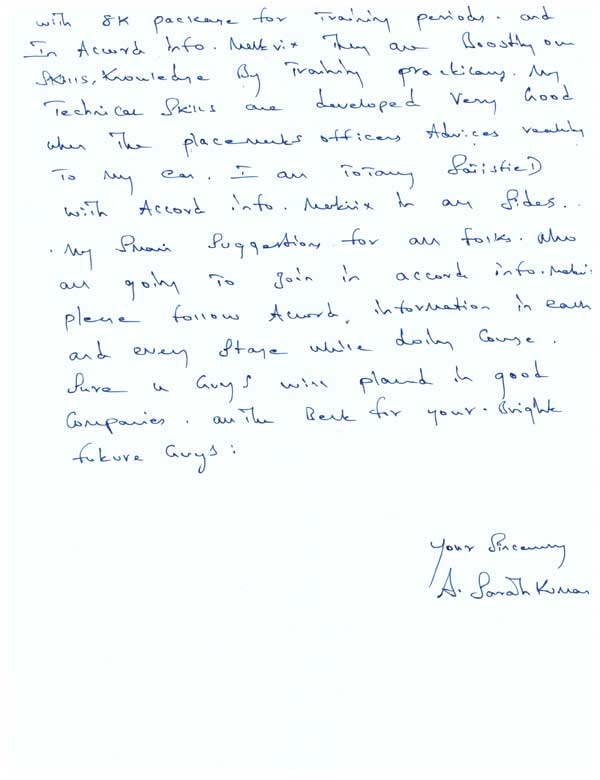 with 8K package for Training periods. and
In Accord info. Matrix They are Boosting our
Skills, Knowledge By Training practically. My
Technical Skills are developed very Good
when The placements officers Advices reaching
To My ear. I am Totally Satisfied
with Accord info. Matrix in all Sides..
. My Small Suggestion for all folks. who
are going To Join in accord info. Matrix
please follow Accord. information in each
and every Stage while doing Course.
Sure u Guys will placed in good
Companies. all The Best for your. Bright
future Guys:
Your Sincerely
A. Sarath Kumar